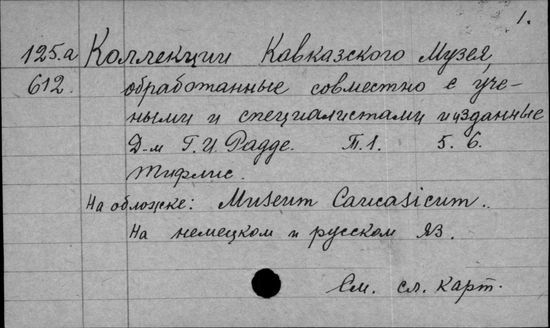 1.
125.а Коллекции Кавказского Музея,
612. обработанные совместно с уче-
ными и специалистами и изданные
Д-м Г. И. Радде. Т. 1. 5. 6.
Тифлис.
На обложке: Museum Caucasicum.
На немецком и русском яз.
См. сл. карт.